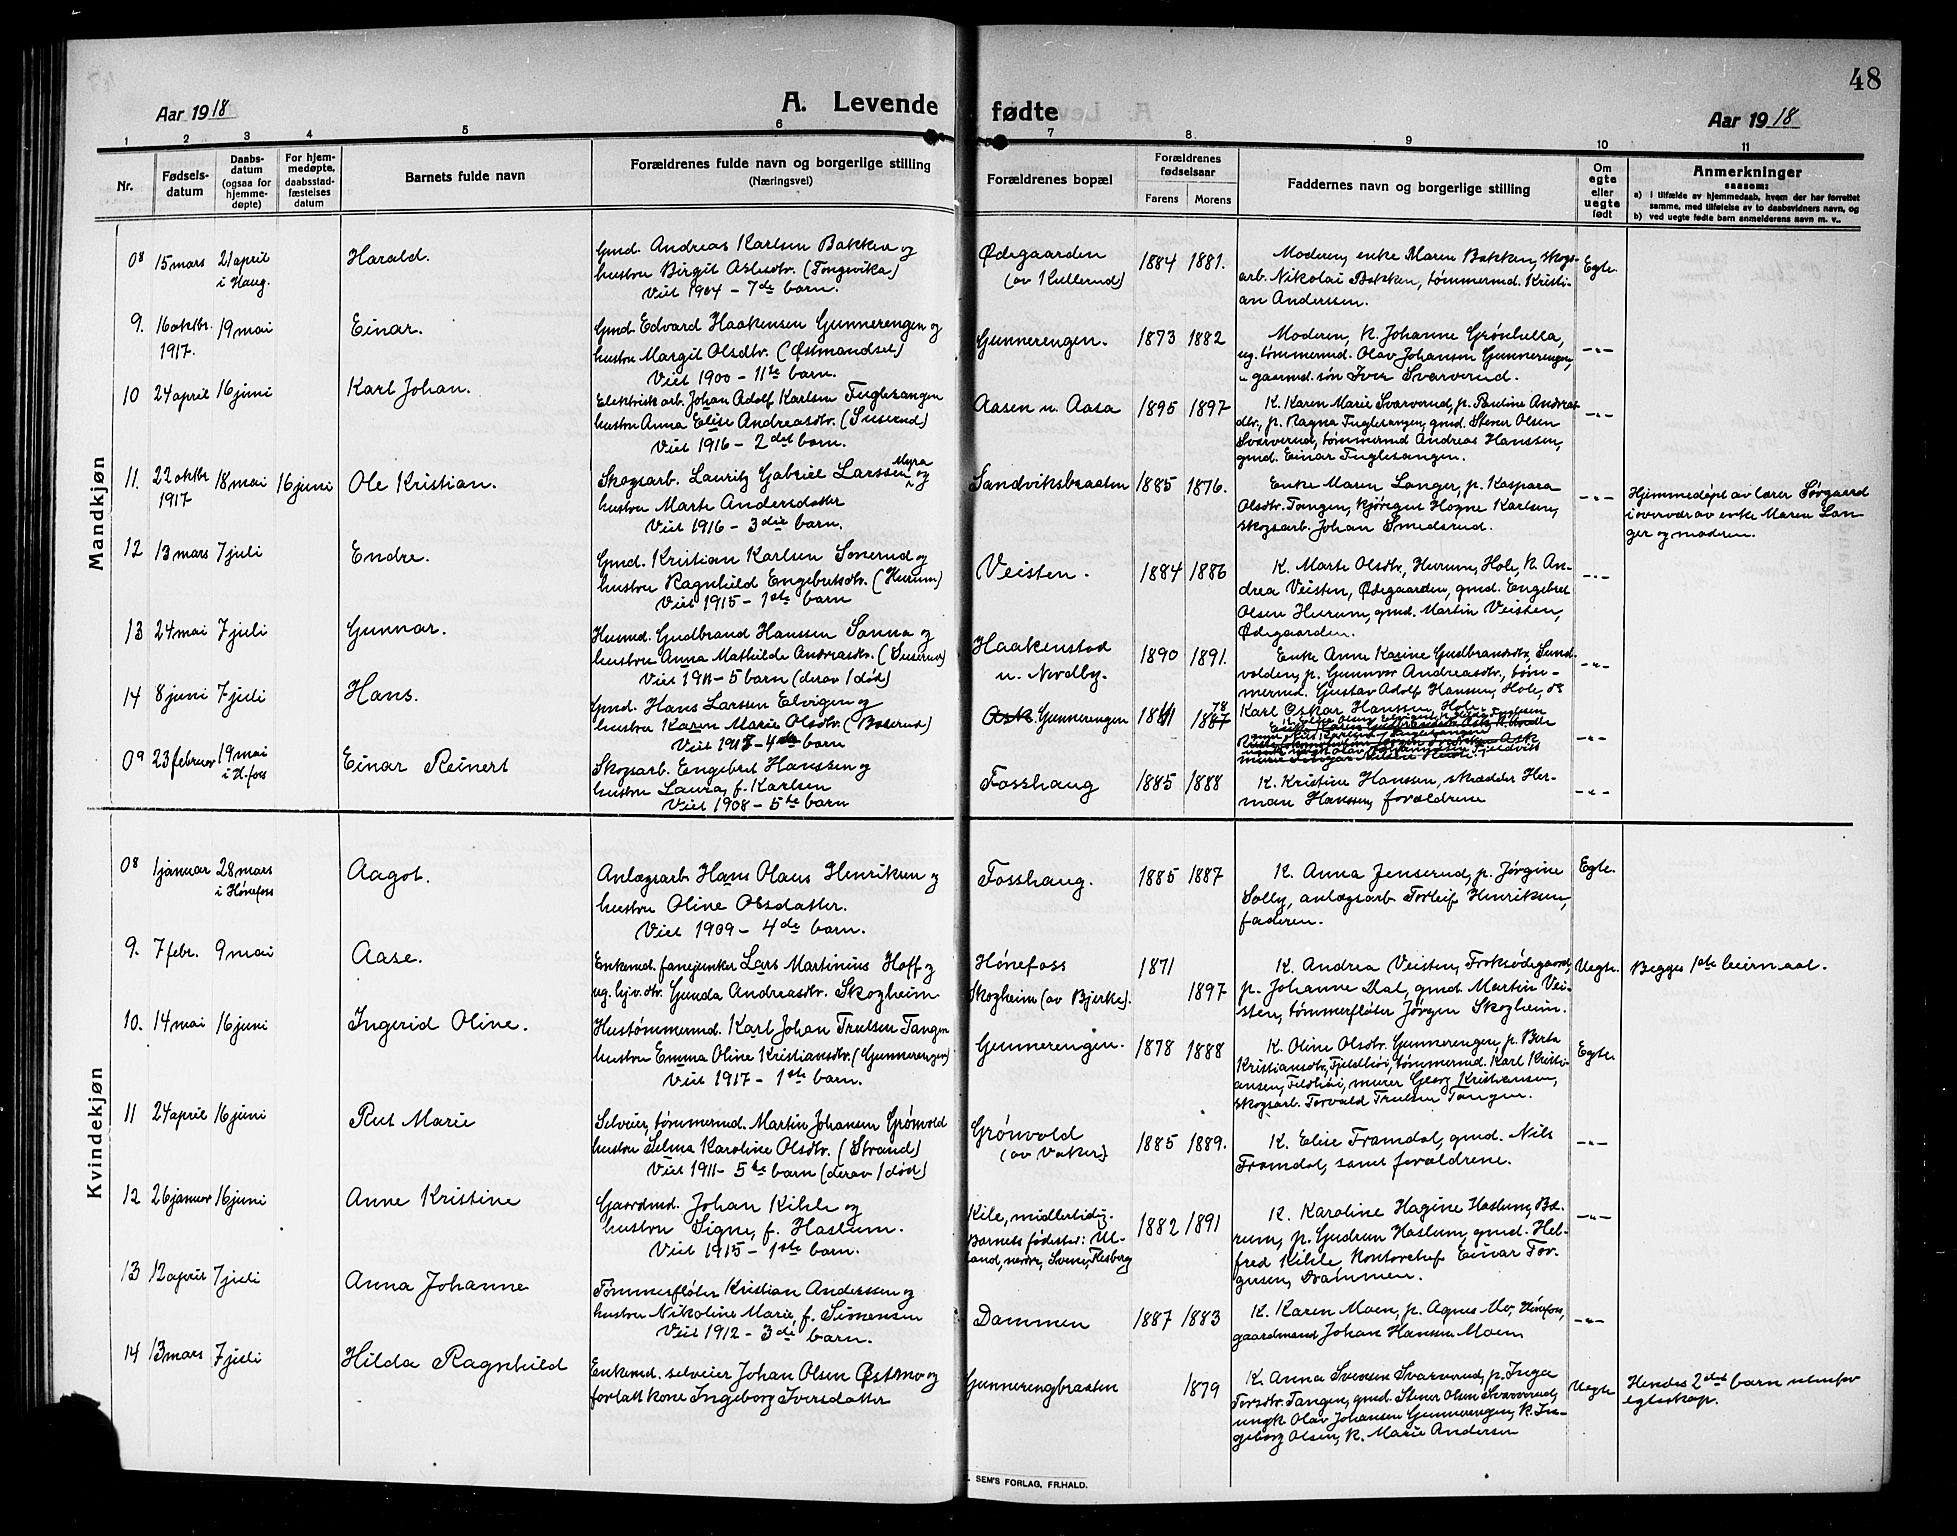 48
Aar 1918
A. Levende fødte
Aar 1918
1 2 3 4 5 6 7 8 9 10 11
Nr.
Fødsels-
datum
Daabs-
datum
(ogsaa for
hjemme-
døpte)
For hjem-
medøpte,
daabsstad-
fæstelses
datum
Barnets fulde navn
Forældrenes fulde navn og borgerlige stilling
(Næringsvei)
Forældrenes bopæl
Forældrenes
fødselsaar
Farens Morens
Faddernes navn og borgerlige stilling
Om
egte
eller
uegte
født
Anmerkninger
saasom:
a) i tilfælde av hjemmedaab, hvem der har forrettet
samme, med tilføielse av to daabsvidners navn, og
b) ved uegte fødte barn anmelderens navn m. v..
Mandkjøn
08 15 mars 21 april
i Haug.
Harald.
Gmd. Andreas Karlsen Bakken og
hustru Birgit Aslesdtr. (Tongevika)
Viet 1904 - 7de barn.
Ødegaarden
(av Kullerud)
1884 1881.
Moderen, enke Maren Bakken, skogs-
arb. Nikolai Bakken, tømmermd. Kristi-
an Anderssen.
Egte.
9. 16 oktbr. 1917. 19 mai
Einar.
Gmd. Edvard Haakensen Gunnerengen og
hustru Margit Olsdtr. (Østmandset)
Viet 1900 - 11te barn.
Gunnerengen.
1873 1882
Moderen, K. Johanne Grønhella,
ug. tømmermd. Olav Johansen Gunnerengen,
" gaarmd. søn Iver Svarverud.
-"-
10 24 april 16 juni
Karl Johan.
Elektrisk arb. Johan Adolf Karlsen Fuglesangen
hustru Anna Elise Andreasdtr. (Suserud)
Viet 1916 - 2det barn.
Aasen u. Aasa
1895 1897
K. Karen Marie Svarverud, p. Pauline Andreas-
dtr., p. Ragna Fuglesangen, gmd. Stener Olsen
Svarverud, tømmermd Andreas Hanssen,
gmd. Einar Fuglesangen.
-"-
11. 22 oktbr 1917 18 mai 16 juni
Ole Kristian.
Skogsarb. Lauritz Gabriel Larssen Myra og
hustru Marte Andersdatter
Viet 1916 - 3die barn.
Sandviksbraaten
1885 1876.
Enke Maren Langer, p. Kaspara
Olsdtr. Tangen, kjøregut Hogne Karlsen,
skogsarb. Johan Smedsrud.
-"-
Hjemmedøpt av lærer Sørgaard
i overvær av enke Maren Lan-
ger og moderen.
12 13 mars 7 juli
Endre.
Gmd. Kristian Karlsen Sonerud og
hustru Ragnhild Engebretsdtr. (Hurum)
Viet 1915 - 1ste barn
Veisten.
1884 1886
K. Marte Olsdtr., Hurum, Hole, K. An-
drea Veisten, Ødegaarden, gmd. Engebret
Olsen Hurum, gmd. Martin Veisten,
Ødegaarden.
-"-
13 24 mai 7 juli
Gunnar.
Husmd. Gudbrand Hanssen Sonna og
hustru Anna Mathilde Andreasdtr. (Suserud)
Viet 1911 - 5 barn (derav 1 død)
Haakenstad
u. Nordby.
1890 1891.
Enke Anne Karine Gudbrandsdtr., Sund-
volden, p. Gunnvor Andreasdtr., tøm-
mermd. Gustav Adolf Hansen, Hole, do
Karl Oskar Hanssen, Hole.
-"-
14 8 juni 7 juli
Hans.
Gmd. Hans Larssen Elvigen og
hustru Karen Marie Olsdtr. (Boserud)
Viet 1917 - 4de barn
Ask Gunnerengen
1881 1887 78
-"-
09 23 februar 19 mai
i H.foss
Einar Reinert
Skogsarb. Engebret Hanssen og
hustru Laura, f. Karlsen
Viet 1908 - 5te barn
Fosshaug
1885 1888
K. Kristine Hansen, skrædder Her-
man Hanssen, forældrene
-"-
Kvindekjøn
08 1 januar 28 mars
i Hønefoss
Aagot.
Anlægsarb. Hans Olaus Henriksen og
hustru Oline Olsdatter.
Viet 1909 - 4de barn.
Fosshaug.
1885 1887
K. Anna Jenserud, p. Jørgine
Solby, anlægsarb Torleif Henriksen,
faderen.
Egte.
9. 7 febr. 9 mai
Aase.
Enkemd. fanejunker Lars Martinius Hoff og
ug. hjv. dtr. Gunda Andreasdtr. Skogheim
Hønefoss
Skogheim (av Bjerke).
1871
1897
K. Andrea Veisten, Froksødegaard,
p. Johanne Dal, gmd. Martin Vei-
sten, tømmerfløter Jørgen Skogheim.
Uegte.
Begges 1ste leiermaal.
10. 14 mai 16 juni
Ingerid Oline.
Hustømmermd. Karl Johan Trulsen Tangen
hustru Emma Oline Kristiansdtr. (Gunnerengen)
Viet 1917 - 1ste barn.
Gunnerengen.
1878 1888
K. Oline Olsdtr. Gunnerengen, p. Berta
Kristiansdtr., Fjeldhøi, tømmermd. Karl Kristi-
ansen, Feldhøi, murer Georg Kristiansen,
skogsarb. Torvald Trulsen Tangen.
Egte.
11 24 april 16 juni
Rut Marie
Selveier, tømmermd. Martin Johansen Grønvold
hustru Selma Karoline Olsdtr. (Strand)
Viet 1911 - 5te barn (derav 1 død)
Grønvold
(av Vaker)
1885 1889.
K. Elise Framdal, gmd. Nils
Framdal, samt forældrene.
-"-
12 26 januar 16 juni
Anne Kristine
Gaardmd. Johan Kihle og
hustru Signe, f. Haslum.
Viet 1915 - 1ste barn.
Kile, midlertidig.
Barnets fødested: Ul-
land, nedre, Svene, Flesberg
1882 1891
K. Karoline Hagine Haslum, Bæ-
rum, p. Gudrun Haslum, gmd. Hel-
fred Kihle, Kontorchef Einar Tor-
gersen, Drammen.
-"-
13 12 april 7 juli
Anna Johanne
Tømmerfløter Kristian Anderssen og
hustru Nikoline Marie, f. Simensen
Viet 1912 - 3die barn.
Dammen
1887 1883
K. Karen Moen, p. Agnes Mo, Hønefoss,
gaardmand Johan Hanssen Moen
-"-
14 13 mars 7 juli
Hilda Ragnhild
Enkemd. selveier Johan Olsen Østmo og
forlatt kone Ingeborg Iversdatter
Gunnerengbraaten
1879
K. Anna Svensen Svarverud, p. Inga
Torsdtr. Tangen, gmd. Stener Olsen Svarverud,
ungk. Olav Johansen Gunnerengen, K. In-
geborg Olsen, K. Marie Andersen
Uegte
Hendes 2det barn utenfor
egteskap.
SEM'S FORLAG, FR.HALD.